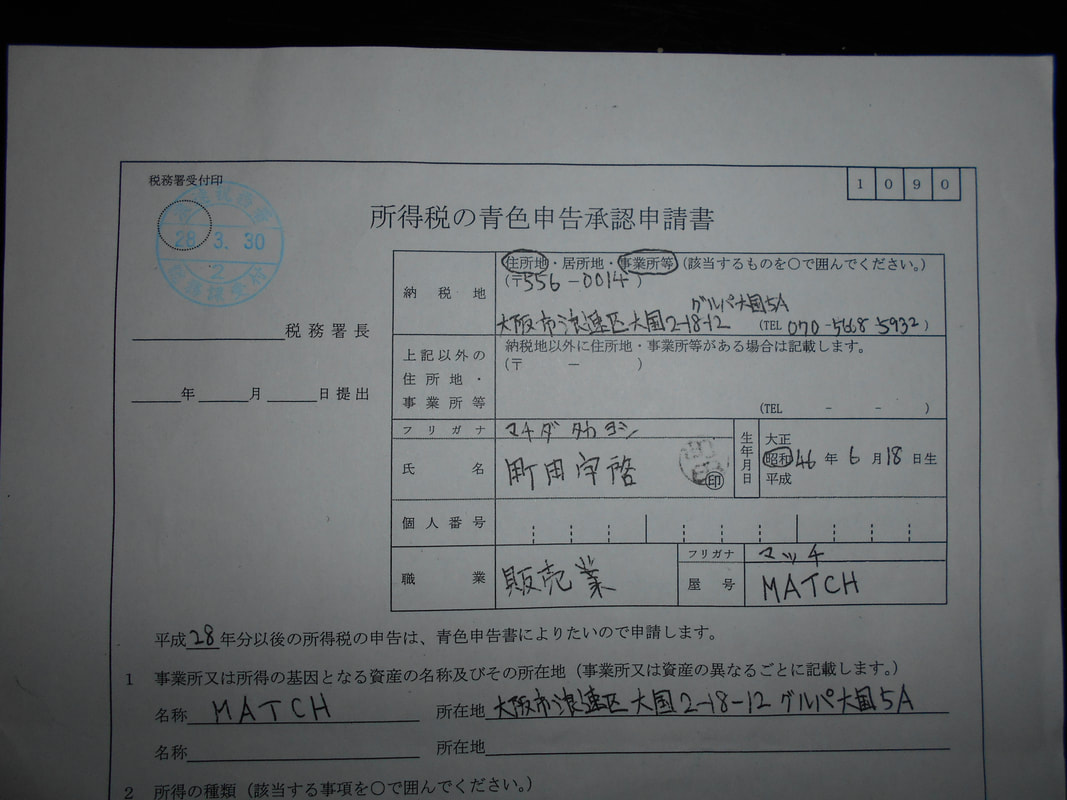 税務署受付印
1 0 9 0
28 3. 30
2
所得税の青色申告承認申請書
税務署長
年 月 日提出
納税地
住所地・居所地・事業所等(該当するものを○で囲んでください。)
(〒556-0014)
グルパ大国5A
大阪市浪速区大国2-18-12 (TEL 070-5668 5932)
上記以外の住所地・事業所等
納税地以外に住所地・事業所等がある場合は記載します。
(〒 - )
(TEL - - )
フリガナ マチダ タカヨシ
氏名 町田宇啓 印
生年月日 大正 昭和 平成 46年 6月18日生
個人番号
職業 販売業
フリガナ マッチ
屋号 MATCH
平成28年分以後の所得税の申告は、青色申告書によりたいので申請します。
1 事業所又は所得の基因となる資産の名称及びその所在地(事業所又は資産の異なるごとに記載します。)
名称 MATCH 所在地 大阪市浪速区大国2-18-12 グルパ大国5A
名称 所在地
2 所得の種類(該当する事項を○で囲んでください。)